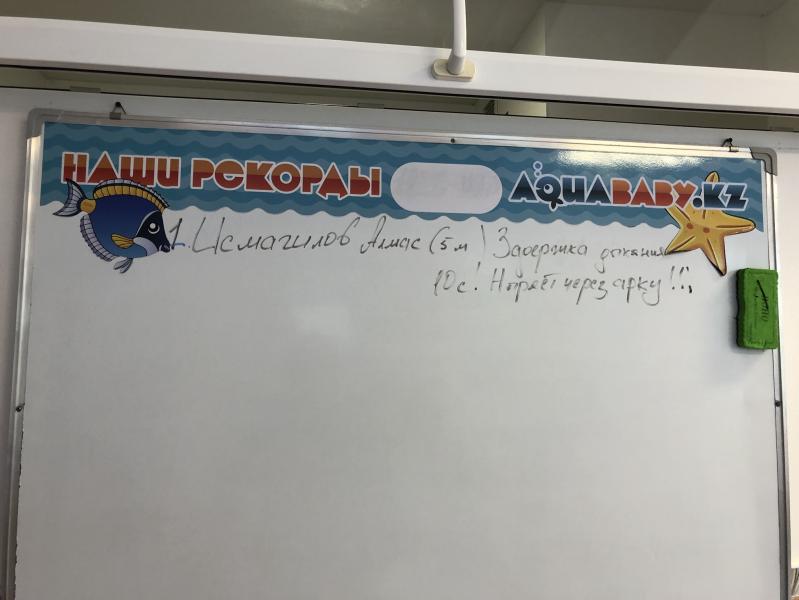 НАШИ РЕКОРДЫ AQUABABY.KZ
1. Исмагилов Алмас (5 м) Задержка дыхания
10с! Ныряет через арку!!!